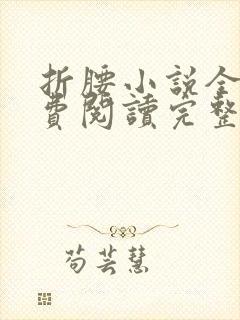 折腰小説全
費閱讀完整
苟芸慧